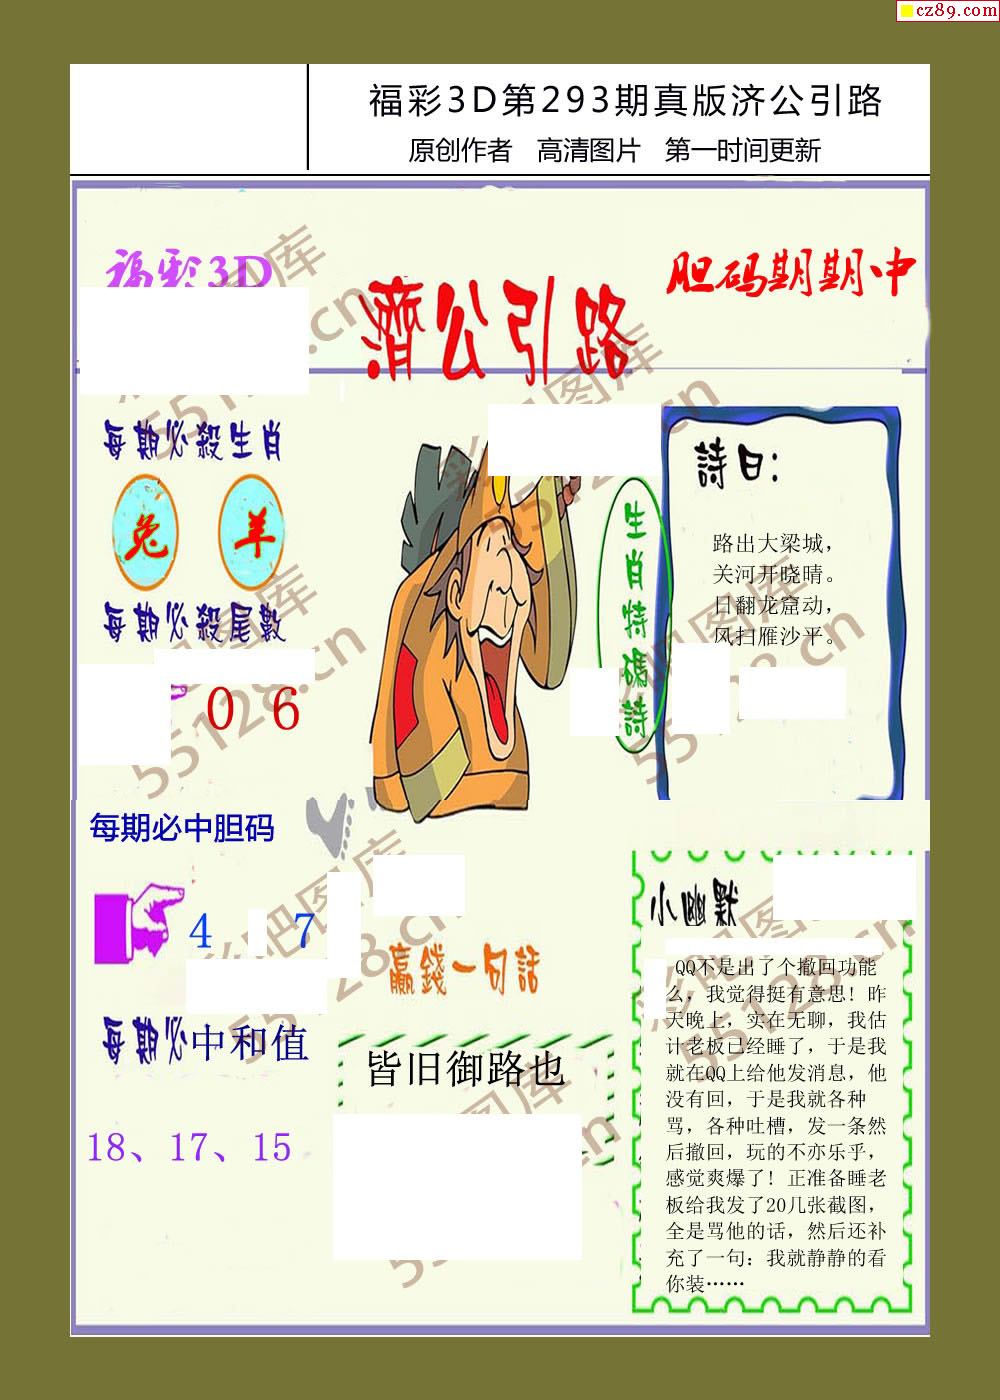 cz89.com
福彩3D第293期真版济公引路
原创作者 高清图片 第一时间更新
福彩3D
濟公引路
胆码期期中
每期必殺生肖
兔 羊
每期必殺尾數
0 6
生肖特碼詩
詩曰：
路出大梁城，
关河开晓晴。
日翻龙窟动，
风扫雁沙平。
每期必中胆码
4 7
每期必中和值
18、17、15
贏錢一句話
皆旧御路也
小幽默
QQ不是出了个撤回功能
么，我觉得挺有意思！昨
天晚上，实在无聊，我估
计老板已经睡了，于是我
就在QQ上给他发消息，他
没有回，于是我就各种
骂，各种吐槽，发一条然
后撤回，玩的不亦乐乎，
感觉爽爆了！正准备睡老
板给我发了20几张截图，
全是骂他的话，然后还补
充了一句：我就静静的看
你装……
彩吧图库
55128.cn